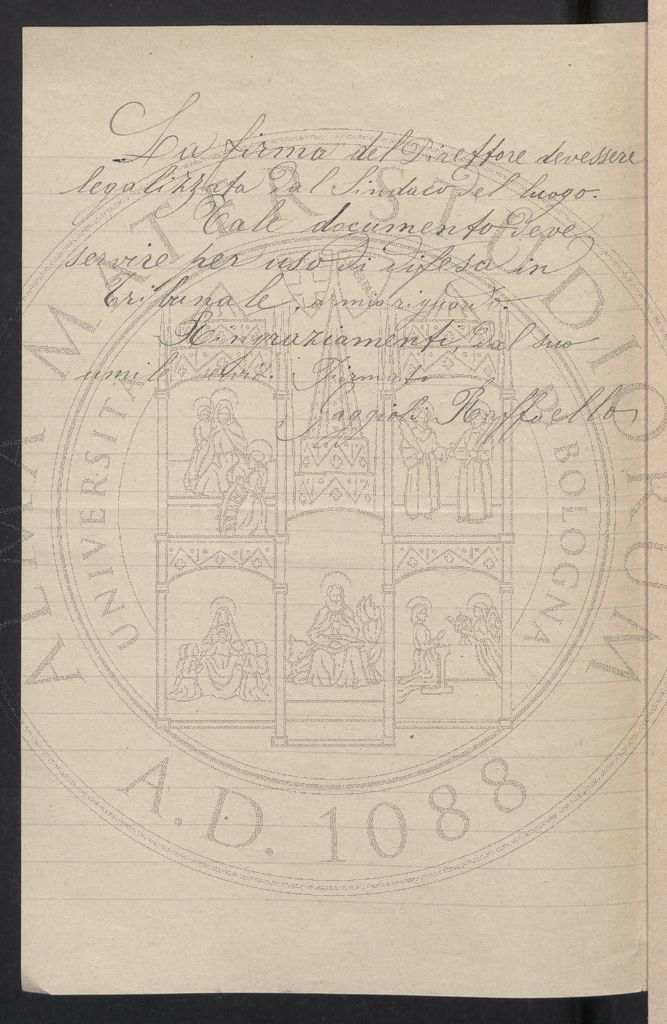 La firma del Direttore devessere
legalizzata dal Sindaco del luogo.
Tale documento deve
servire per uso di difesa in
Tribunale, a mio riguardo.
Ringraziamenti dal suo
umile Firmato
Gaggioli Raffaello
ALMA MATER STUDIORUM
UNIVERSITA
BOLOGNA
A.D. 1088